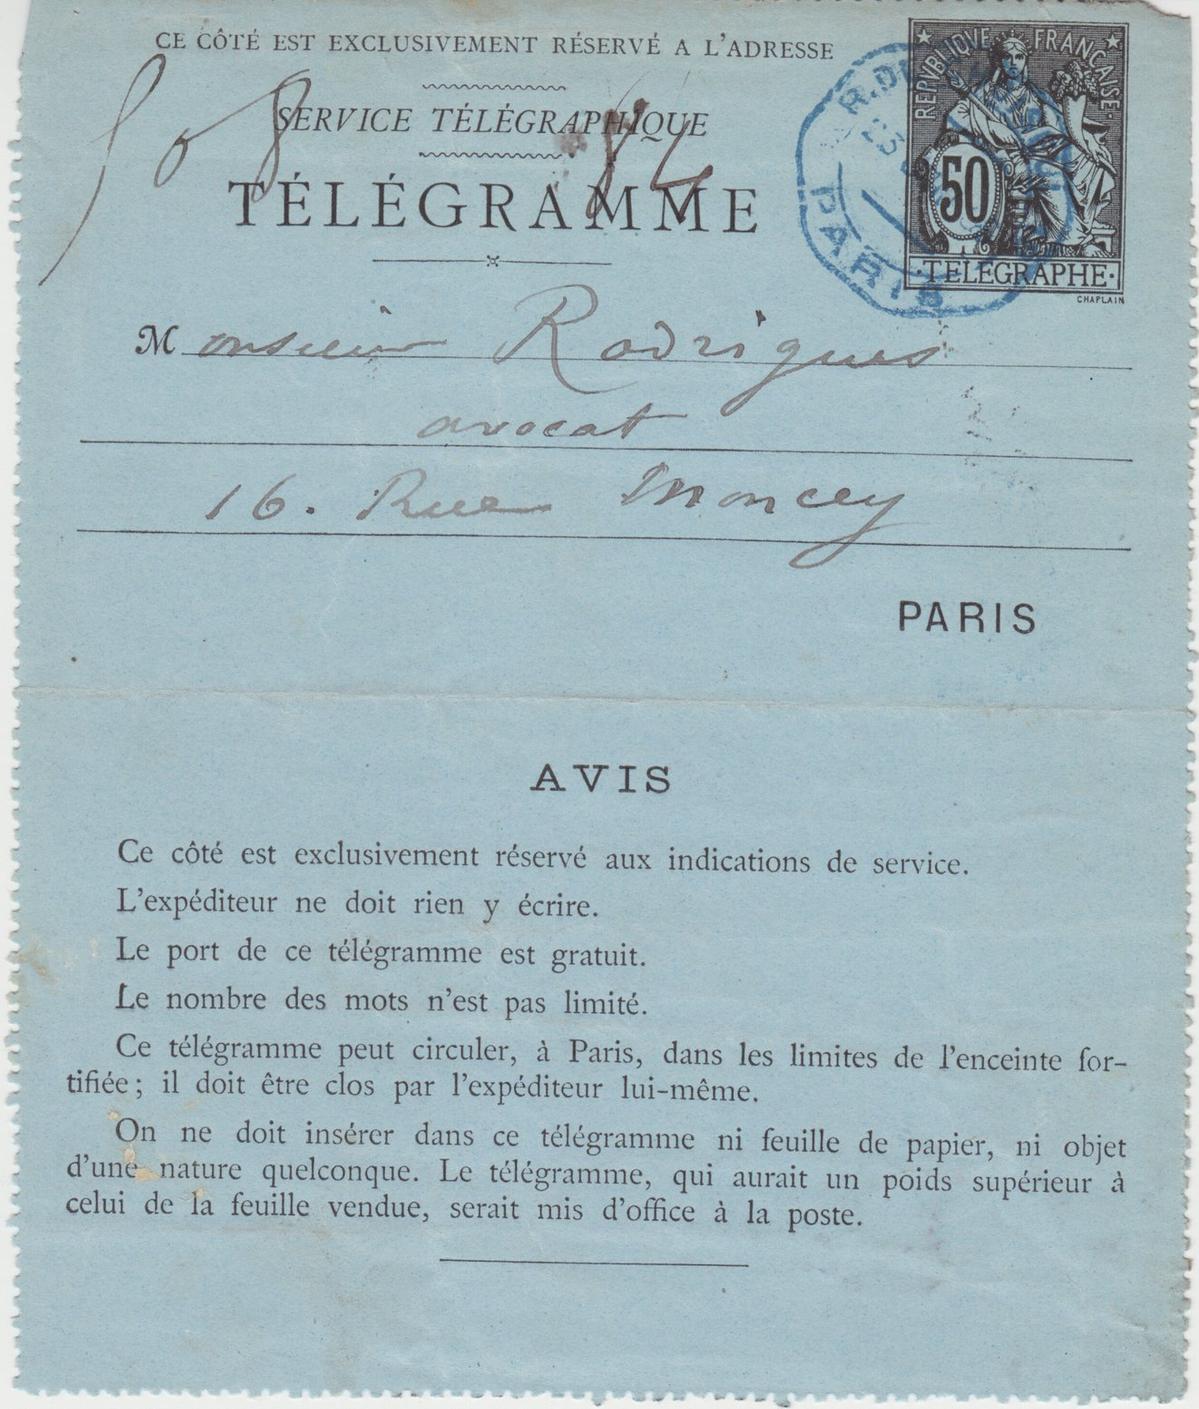 CE CÔTÉ EST EXCLUSIVEMENT RÉSERVÉ A L'ADRESSE
REPVBLIQVE FRANÇAISE
SERVICE TÉLÉGRAPHIQUE
50
TÉLÉGRAMME
PARIS
TELEGRAPHE
CHAPLAIN
Monsieur Rodrigues
avocat
16. Rue Moncey
PARIS
AVIS
Ce côté est exclusivement réservé aux indications de service.
L'expéditeur ne doit rien y écrire.
Le port de ce télégramme est gratuit.
Le nombre des mots n'est pas limité.
Ce télégramme peut circuler, à Paris, dans les limites de l'enceinte for-
tifiée; il doit être clos par l'expéditeur lui-même.
On ne doit insérer dans ce télégramme ni feuille de papier, ni objet
d'une nature quelconque. Le télégramme, qui aurait un poids supérieur à
celui de la feuille vendue, serait mis d'office à la poste.